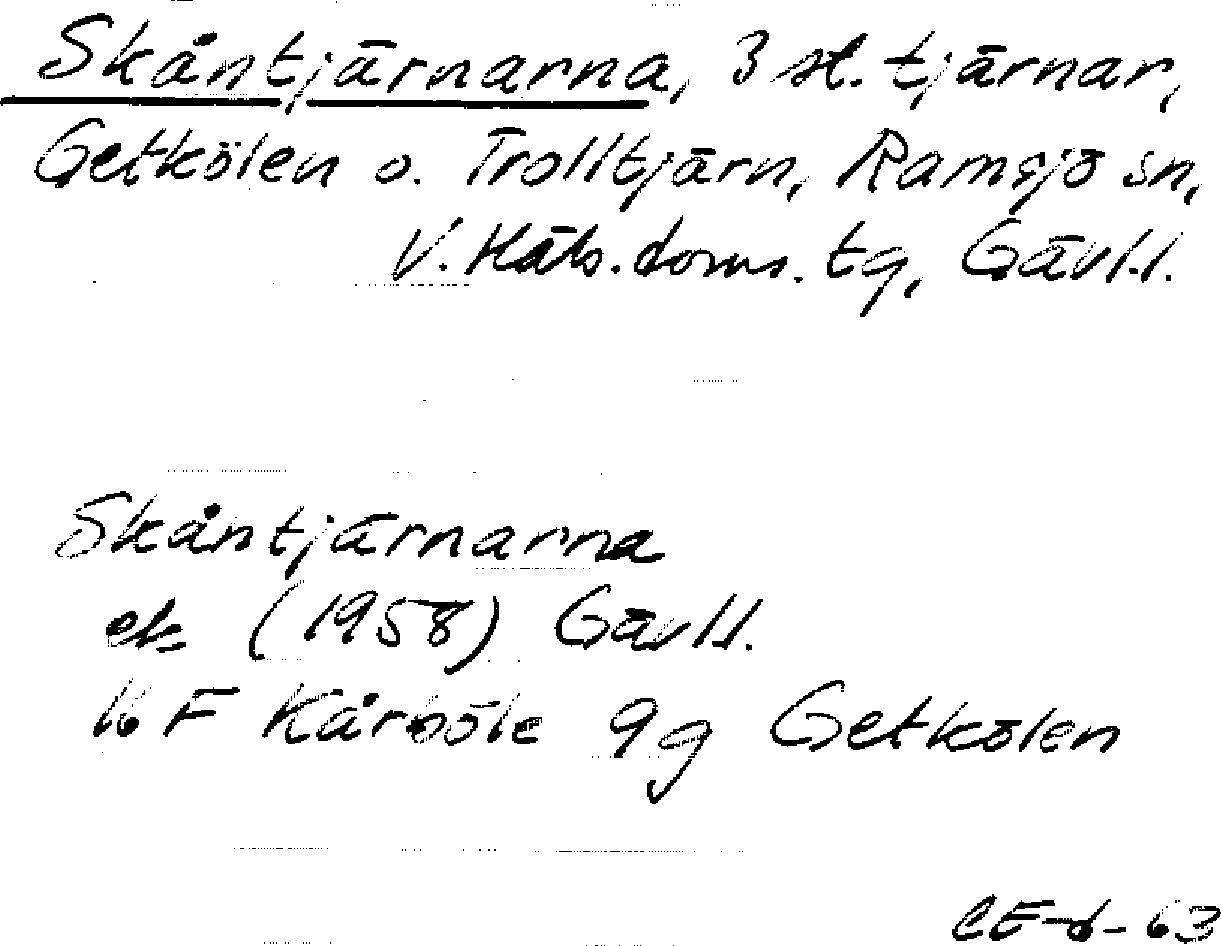 Skåntjärnarna, 3 st. tjärnar,
Getkölen o. Trolltjärn, Ramsjö sn,
V. Häls. doms. tg, Gävl.l.
Skåntjärnarna
ek (1958) Gävl.l.
16 F Kårböle 9g Getkölen
CE-6-63